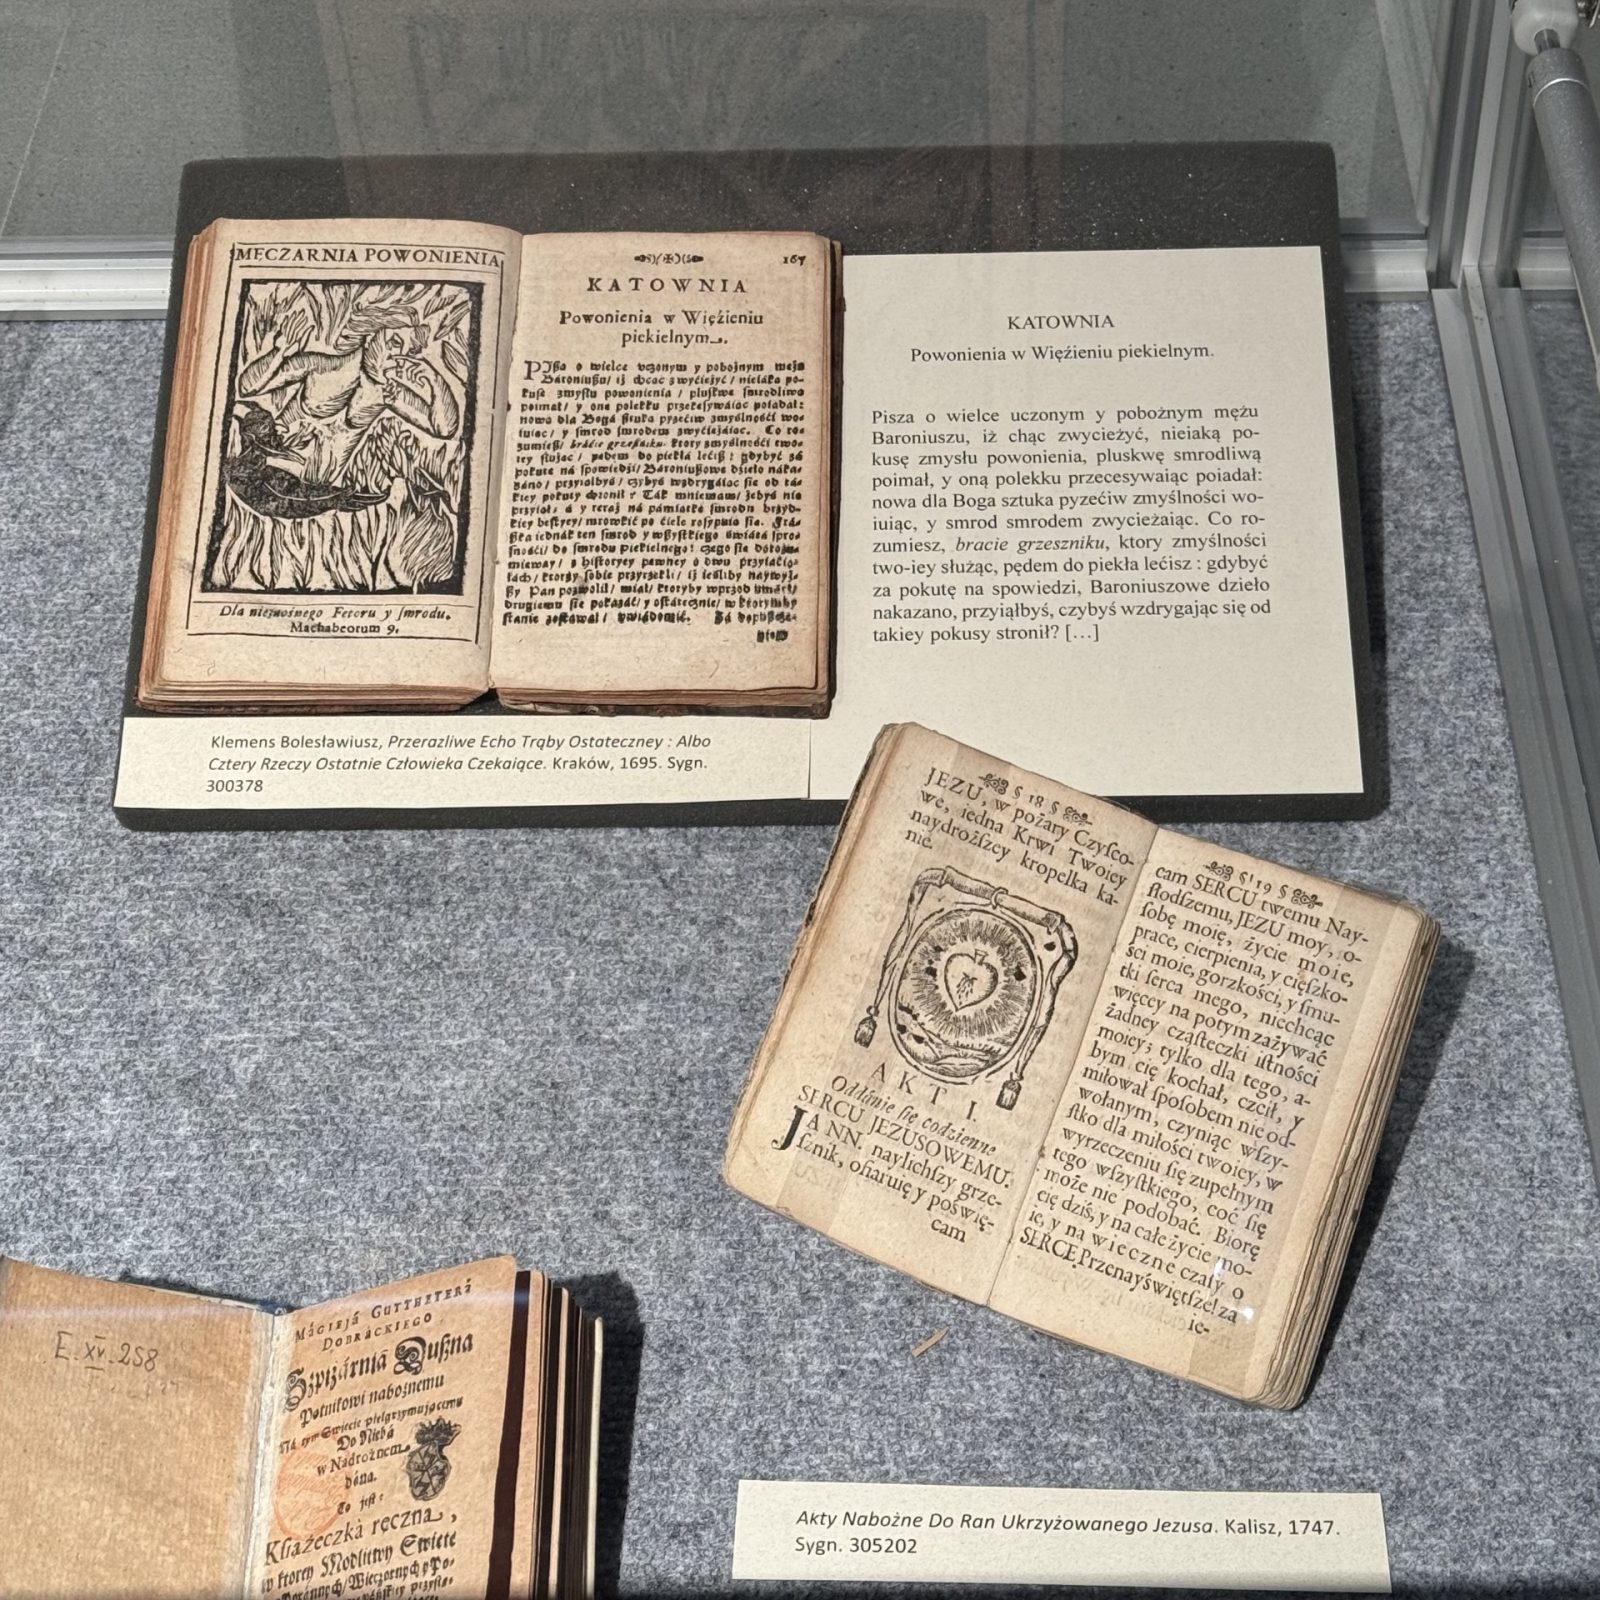 MĘCZARNIA POWONIENIA
Dla nieznośnego Fetoru y ſmrodu.
Machabeorum 9.
167
KATOWNIA
Powonienia w Więźieniu
piekielnym.
Pißa o wielce vczonym y pobożnym mężu
Baroniußu/ iż chcąc zwyćiężyć/ nieiáką po-
kusę zmysłu powonienia / pluskwę smrodliwą
poimał/ y onę polekku przećesywáiąc poiadał:
nowa dla Bogá sztuka pyzećiw zmyślności wo-
iuiąc/ y smrod smrodem zwyćiężáiąc. Co ro-
zumieß/ bráćie grzeßniku, ktory zmyślnośći two-
iey służąc/ pędem do piekłá lećiß: gdybyć zá
pokutę ná spowiedźi/ Baroniußowe dzieło náka-
zano/ przyiąłbyś/ czybyś wzdrygáiąc się od tá-
kiey pokuty stronił? Ták mniemam/ żebyś nie
przyiął/ á y teraz ná pámiątkę smrodu brzyd-
kiey bestyey/ mrowkić po ćiele rosypuią się. Frá-
ßká iednák ten smrod y wßystkiego świátá spro-
snośći/ do smrodu piekielnego! czego się dorozu-
miewáy/ z historyey pewney o dwu przyiaćio-
łách/ ktorzy sobie przyrzekli/ iż ieśliby naywyż-
ßy Pan pozwolił/ miał/ ktoryby wprzod umárł/
drugiemu się pokazáć/ y ostátecznie/ w ktorymby
stanie zostawał/ uwiádomić. Zá dopußcze-
niem
KATOWNIA
Powonienia w Więźieniu piekielnym.
Pisza o wielce uczonym y pobożnym mężu
Baroniuszu, iż chąc zwycieżyć, nieiaką po-
kusę zmysłu powonienia, pluskwę smrodliwą
poimał, y oną polekku przecesywaiąc poiadał:
nowa dla Boga sztuka pyzećiw zmyślności wo-
iuiąc, y smrod smrodem zwycieżaiąc. Co ro-
zumiesz, bracie grzeszniku, ktory zmyślności
two-iey służąc, pędem do piekła lećisz : gdybyć
za pokutę na spowiedzi, Baroniuszowe dzieło
nakazano, przyiąłbyś, czybyś wzdrygając się od
takiey pokusy stronił? […]
Klemens Bolesławiusz, Przerazliwe Echo Trąby Ostateczney : Albo
Cztery Rzeczy Ostatnie Człowieka Czekaiące. Kraków, 1695. Sygn.
300378
§ 18 §
JEZU, w pożary Czyſco-
we, iedna Krwi Twoiey
naydrożſzey kropelka ka-
nie.
AKT I.
Oddánie ſię codzienne
SERCU JEZUSOWEMU.
JA NN. naylichſzy grze-
ſznik, ofiaruię y poświę-
cam
§ 19 §
cam SERCU twemu Nay-
ſłodſzemu, JEZU moy, o-
ſobę moię, życie moie,
prace, cierpienia, y ciężko-
ści moie, gorzkości, y ſmu-
tki ſerca mego, niechcąc
więcey na potym zażywać
żadney cząſteczki iſtności
moiey; tylko dla tego, a-
bym cię kochał, czcił, y
miłował ſpoſobem nie od-
wołanym, czyniąc wſzy-
ſtko dla miłości twoiey, w
wyrzeczeniu ſię zupełnym
tego wſzyſtkiego, coć ſię
może nie podobać. Biorę
cię dziś, y na całe życie mo-
ie, y na wieczne czaſy o
SERCE Przenayświętſze! za
ie-
Akty Nabożne Do Ran Ukrzyżowanego Jezusa. Kalisz, 1747.
Sygn. 305202
E. XV. 258
MácIEJá GUTTHETERá
DOBRáCKIEGO
Szpiżárniá Dußna
Potnikowi nabożnemu
Ná tym Swiećie pielgrzymuiącemu
Do Niebá
w Nadrożnem
dána.
To jest:
Kśiążeczká ręczna,
w ktorey Modlitwy Swięte
Poránnych/ Wieczornych y Po-